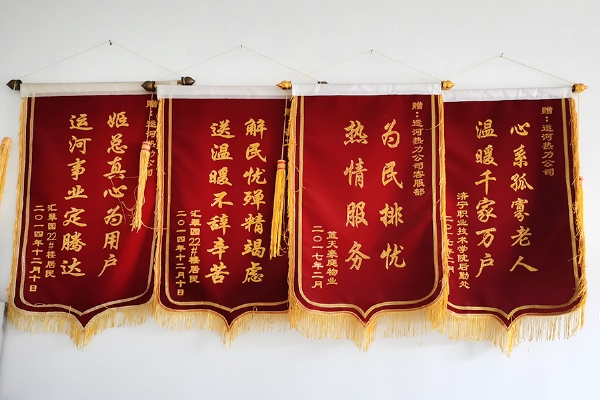 赠:运河热力公司
姬总真心为用户
运河事业定腾达
汇翠园22#楼居民
二〇一四年十二月十日
解民忧殚精竭虑
送温暖不辞辛苦
汇翠园22#楼居民
二〇一四年十二月十日
赠:运河热力公司客服部
为民排忧
热情服务
蓝天豪庭物业
二〇一七年二月
赠:运河热力公司
心系孤寡老人
温暖千家万户
济宁职业技术学院后勤处